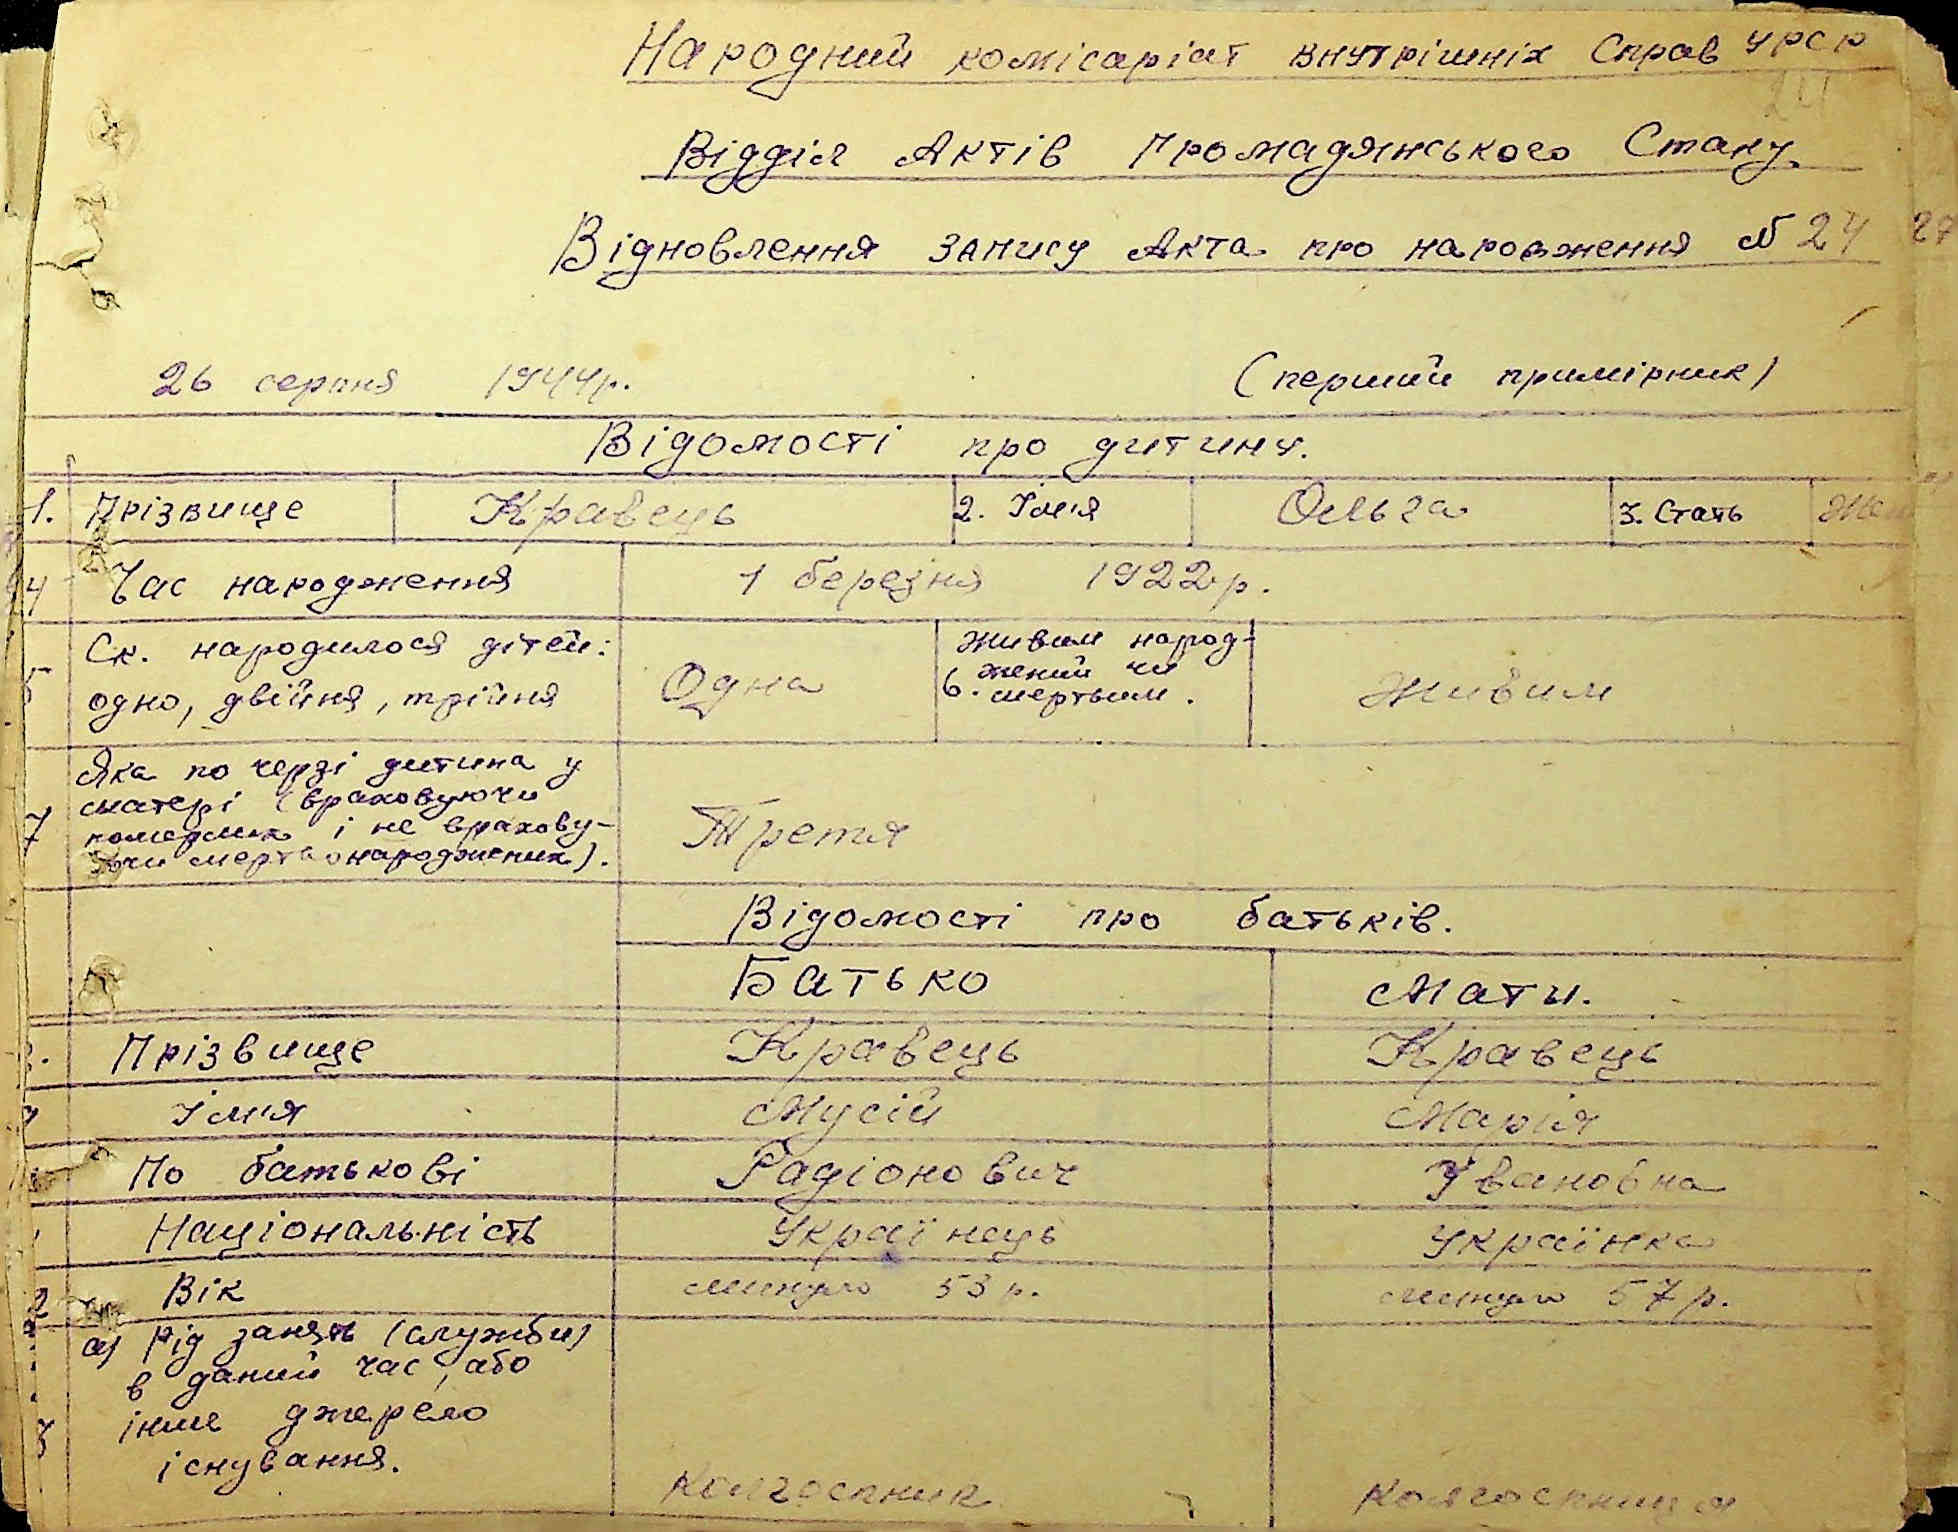 Народний комісаріат внутрішніх Справ УРСР
Відділ Актів Громадянського Стану
Відновлення запису Акта про народження № 24
26 серпня 1944р.
(перший примірник)
Відомості про дитину.
1. Прізвище Кравець 2. Ім'я Ольга 3. Стать
4 Час народження 1 березня 1922р.
5 Ск. народилося дітей:
одно, двійня, трійня
Одна
Живим народ-
жений чи
6. мертвим.
Живим
7 Яка по черзі дитина у
матері (враховуючи
померлих і не врахову-
ючи мертвонароджених).
Третя
Відомості про батьків.
Батько Мати.
Прізвище Кравець Кравець
Ім'я Мусій Марія
По батькові Радіонович Івановна
Національність Українець Українка
Вік минуло 53 р. минуло 57 р.
а) Рід занять (служби)
в даний час, або
інше джерело
існування.
Колгоспник Колгоспниця